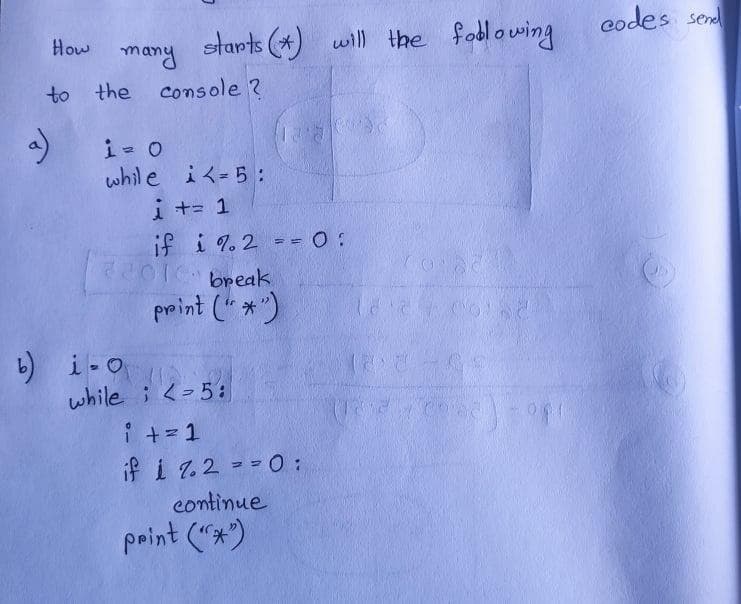 How many starts (*) will the following codes send
to the console?
a) i = 0
while i <= 5 :
i += 1
if i % 2 == 0 :
break
print ("*")
b) i = 0
while i <= 5 :
i += 1
if i % 2 == 0 :
continue
print ("*")